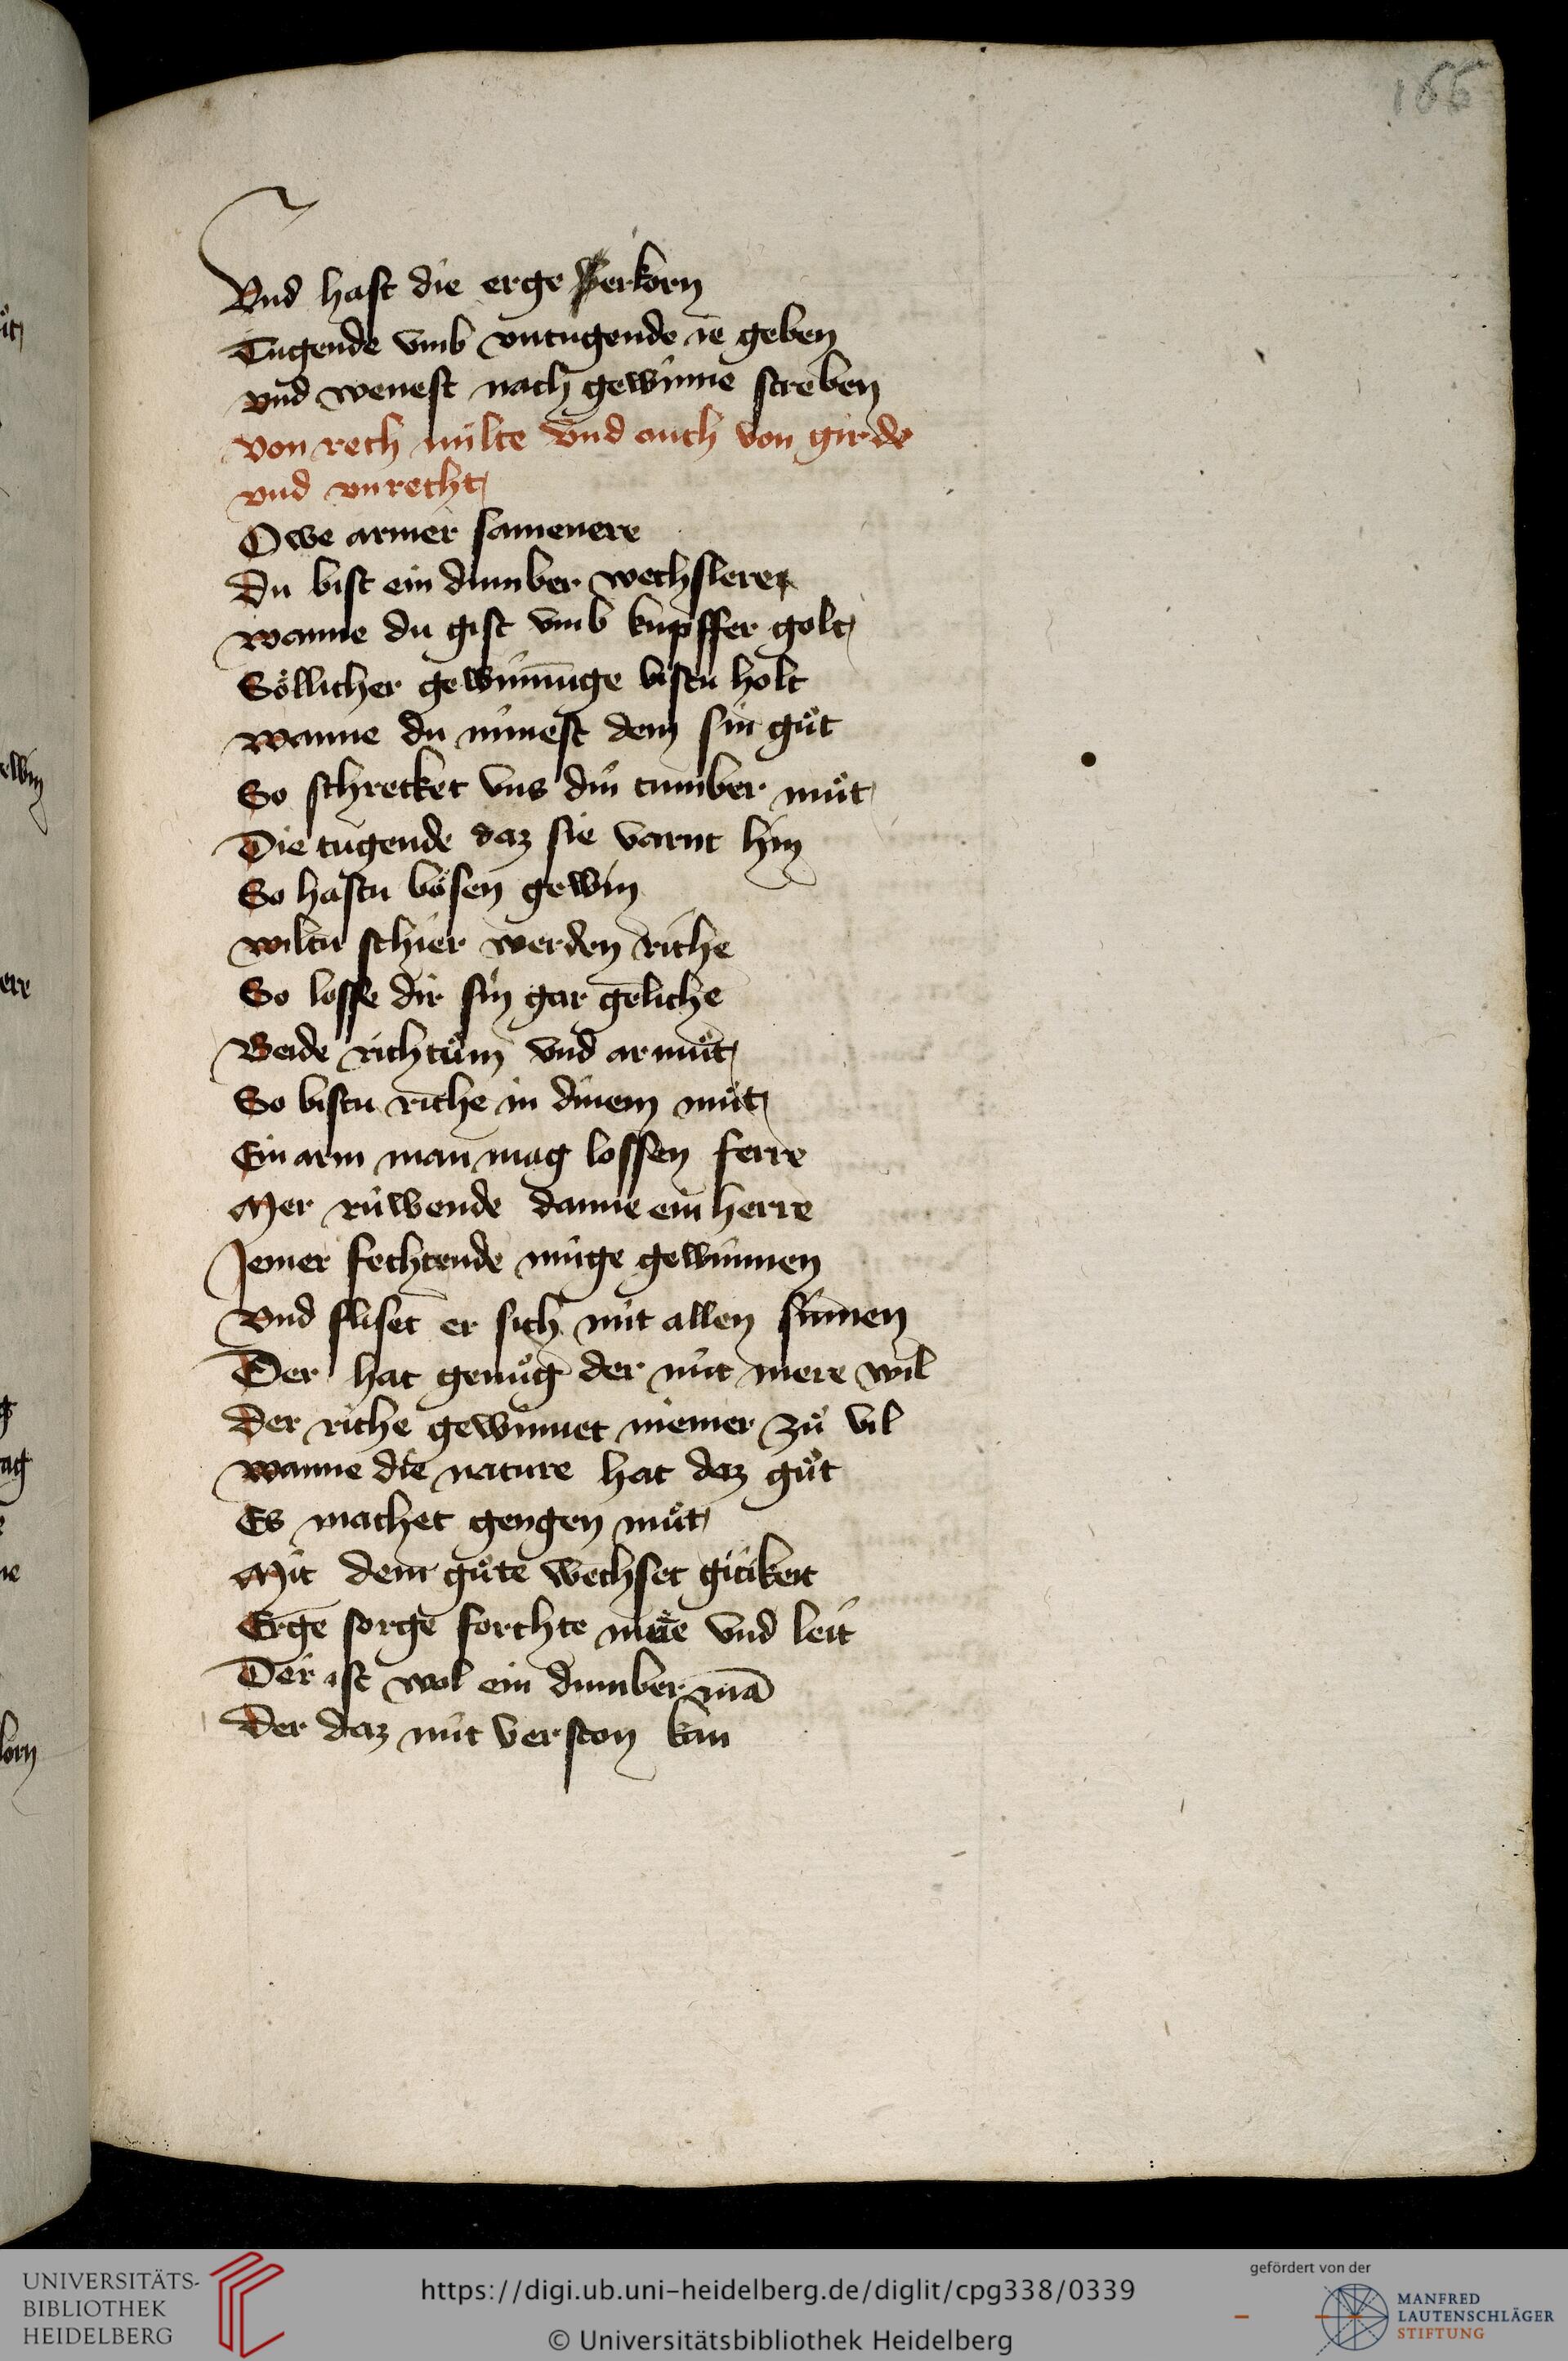 166
Vnd hast die erge verkorn
Tugende vmb vntugende ie geben
vnd wenest nach gewinne streben
von rech milte vnd auch von girde
vnd vnrecht
Owe armer samenere
Du bist ein dumber wechslere
wanne du gist vmb kupffer golt
Söllicher gewinnūge bistu holt
wanne du nimest dem sin guͦt
So schrecket vns din tumber muͦt
Die tugende daz sie varnt hin
So hastu bösen gewin
wiltu schier werden riche
So losse dir sin gar geliche
Beide richtuͦm vnd armuͦt
So bistu riche in dinem muͦt
Ein arm man mag lossen ferre
Mer ruwende danne ein herre
Jemer fechtende muge gewinnen
Vnd fliset er sich mit allen sinnen
Der hat genuͦg der nit mere wil
Der riche gewinnet niemer zuͦ vil
wanne die nature hat daz guͦt
Es machet gengen muͦt
Mit dem guͦte wechset gitikeit
Erge sorge forchte muͤe vnd leit
Der ist wol ein dumber mā
Der daz nit verston kan
ere
UNIVERSITÄTS-
BIBLIOTHEK
HEIDELBERG
https://digi.ub.uni-heidelberg.de/diglit/cpg338/0339
© Universitätsbibliothek Heidelberg
gefördert von der
MANFRED
LAUTENSCHLÄGER
STIFTUNG